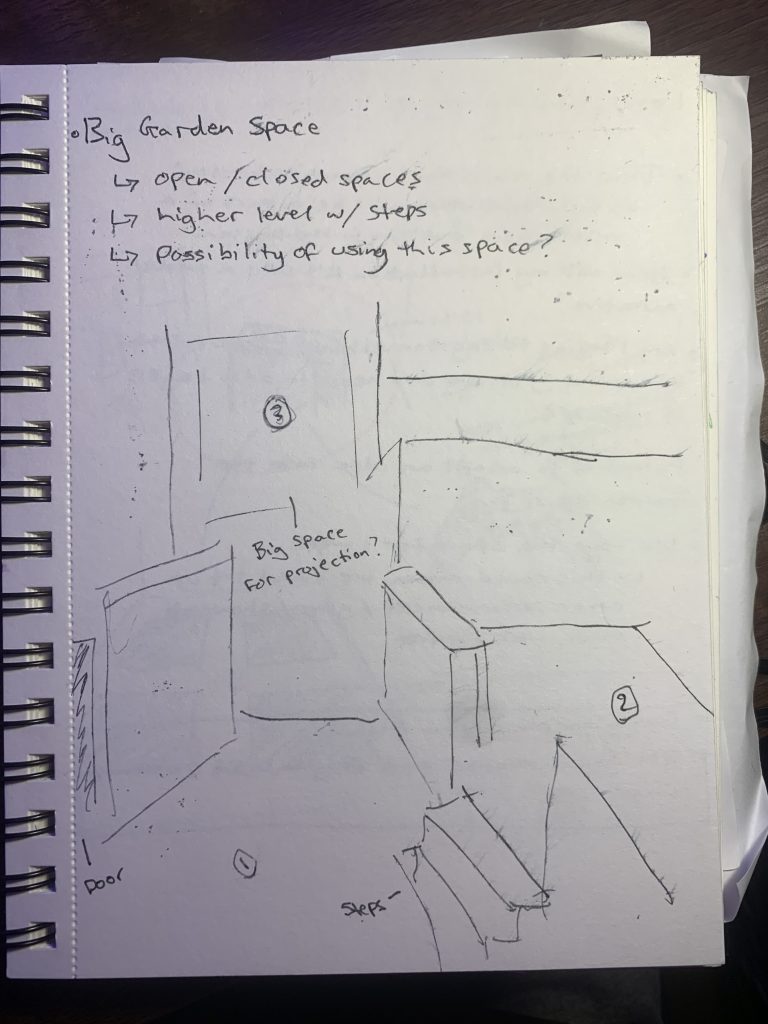 • Big Garden Space
↳ open / closed spaces
↳ higher level w/ steps
↳ possibility of using this space?
3
Big space
for projection?
2
1
Door
Steps